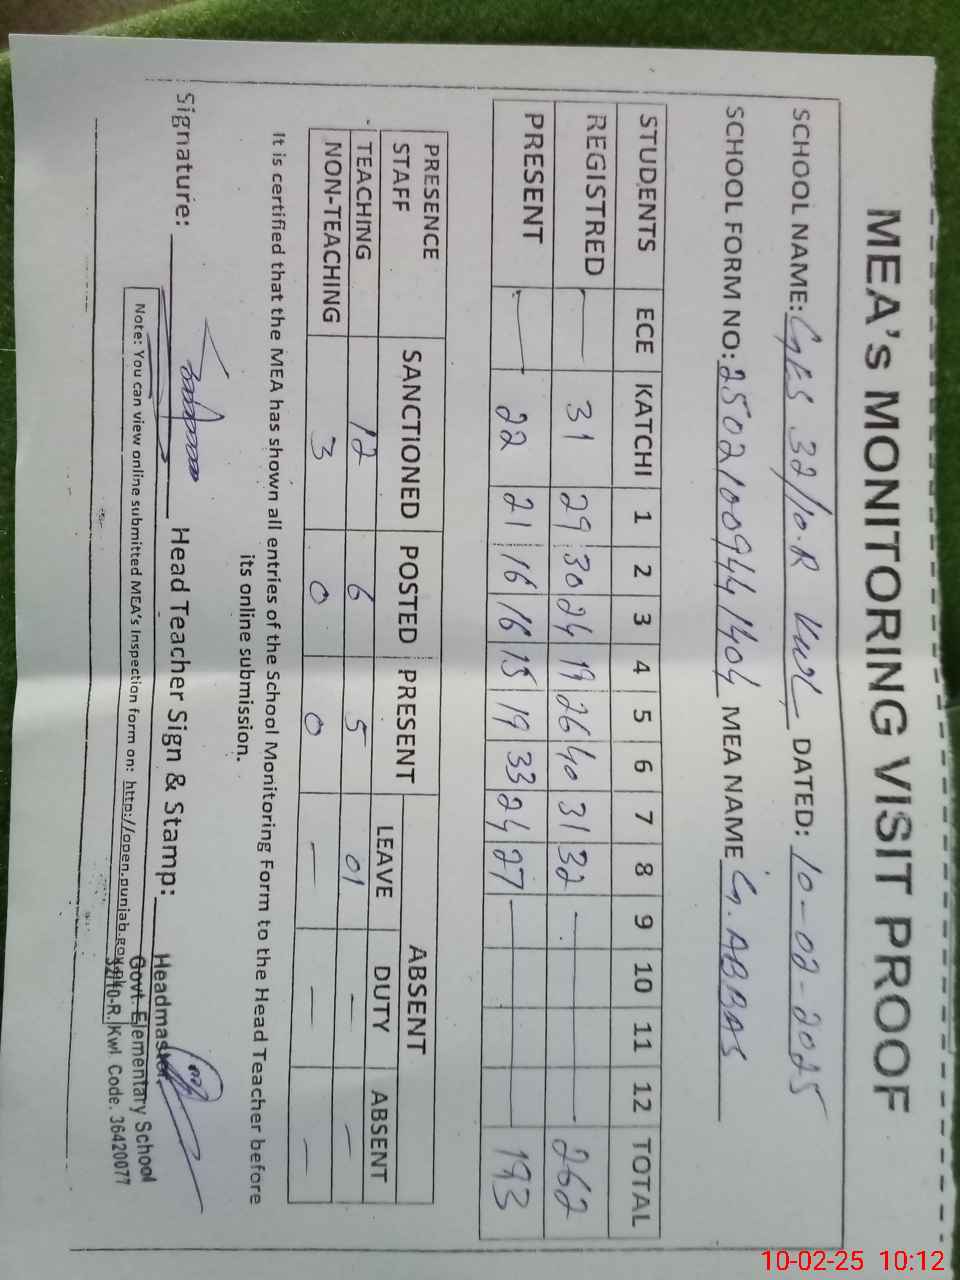 MEA's MONITORING VISIT PROOF
SCHOOL NAME: GES 32/10.R KWL DATED: 10-02-2025
SCHOOL FORM NO: 25021009441404 MEA NAME G. ABBAS
STUDENTS ECE KATCHI 1 2 3 4 5 6 7 8 9 10 11 12 TOTAL
REGISTRED — 31 29 30 24 19 26 40 31 32 — 262
PRESENT — 22 21 16 16 15 19 33 24 27 — 193
PRESENCE SANCTIONED POSTED PRESENT ABSENT
STAFF LEAVE DUTY ABSENT
TEACHING 12 6 5 01 — —
NON-TEACHING 3 0 0 — — —
It is certified that the MEA has shown all entries of the School Monitoring Form to the Head Teacher before
its online submission.
Signature: Head Teacher Sign & Stamp:
Headmaster
Govt. Elementary School
32/10-R. Kwl. Code. 36420077
Note: You can view online submitted MEA's Inspection form on: http://open.punjab.gov.pk
10-02-25 10:12